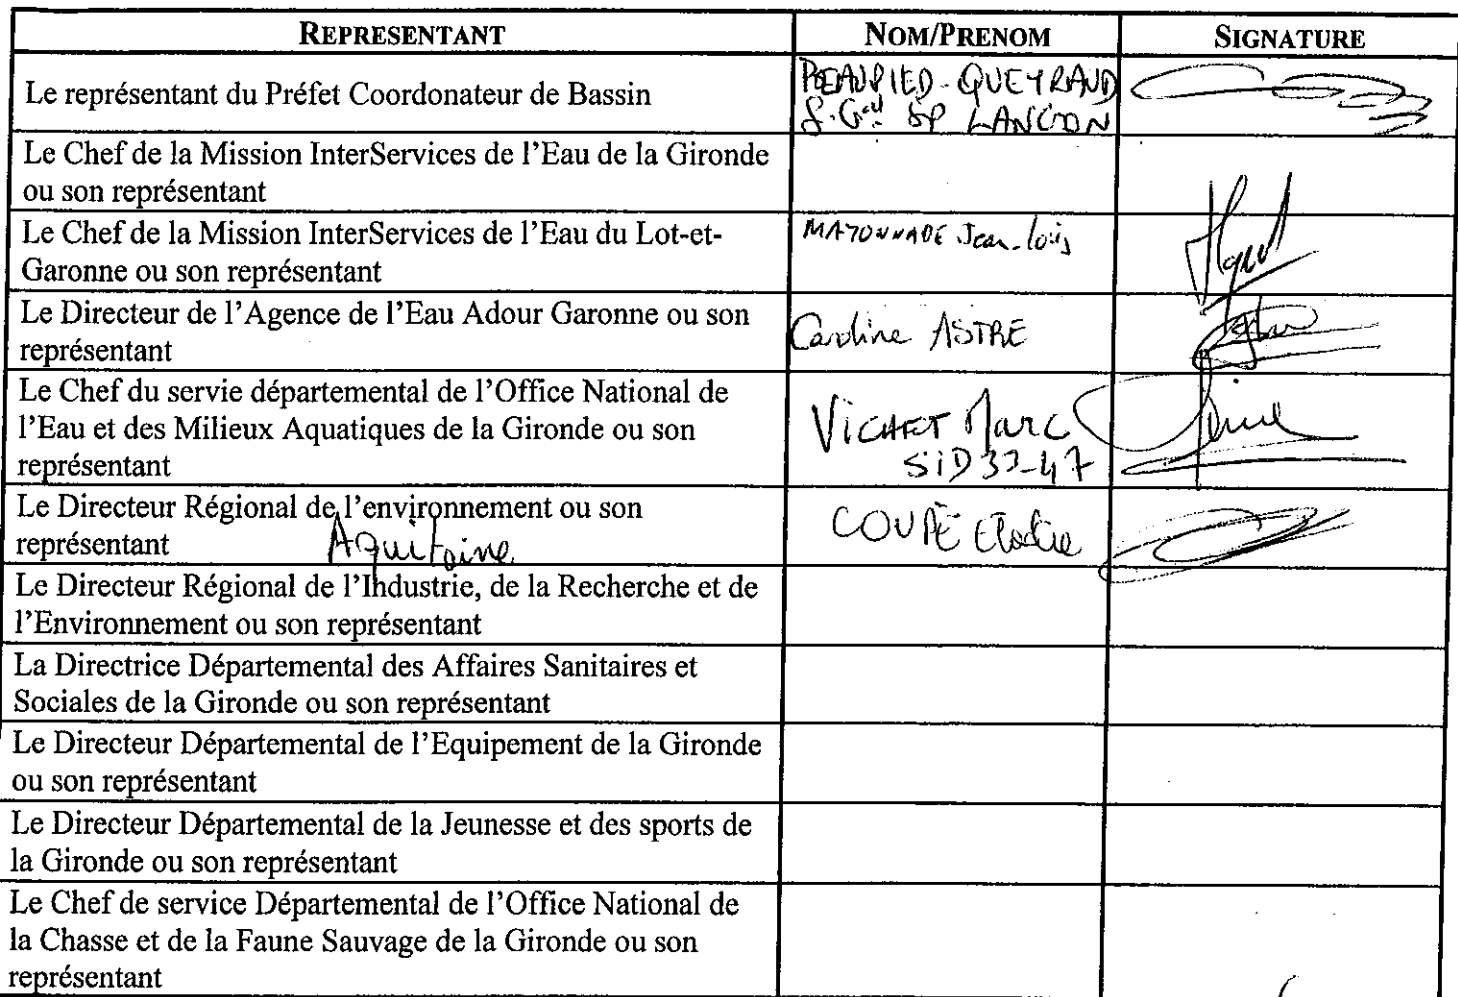 REPRESENTANT NOM/PRENOM SIGNATURE
Le représentant du Préfet Coordonateur de Bassin
BEAUPIED-QUEYRAUD
S.Gal SP LANGON
Le Chef de la Mission InterServices de l'Eau de la Gironde
ou son représentant
Le Chef de la Mission InterServices de l'Eau du Lot-et-
Garonne ou son représentant
MAZONNADE Jean-Louis
Le Directeur de l'Agence de l'Eau Adour Garonne ou son
représentant
Caroline ASTRE
Le Chef du servie départemental de l'Office National de
l'Eau et des Milieux Aquatiques de la Gironde ou son
représentant
VICHET Marc
SID 33-47
Le Directeur Régional de l'environnement ou son
représentant Aquitaine
COUPÉ Elodie
Le Directeur Régional de l'Industrie, de la Recherche et de
l'Environnement ou son représentant
La Directrice Départemental des Affaires Sanitaires et
Sociales de la Gironde ou son représentant
Le Directeur Départemental de l'Equipement de la Gironde
ou son représentant
Le Directeur Départemental de la Jeunesse et des sports de
la Gironde ou son représentant
Le Chef de service Départemental de l'Office National de
la Chasse et de la Faune Sauvage de la Gironde ou son
représentant